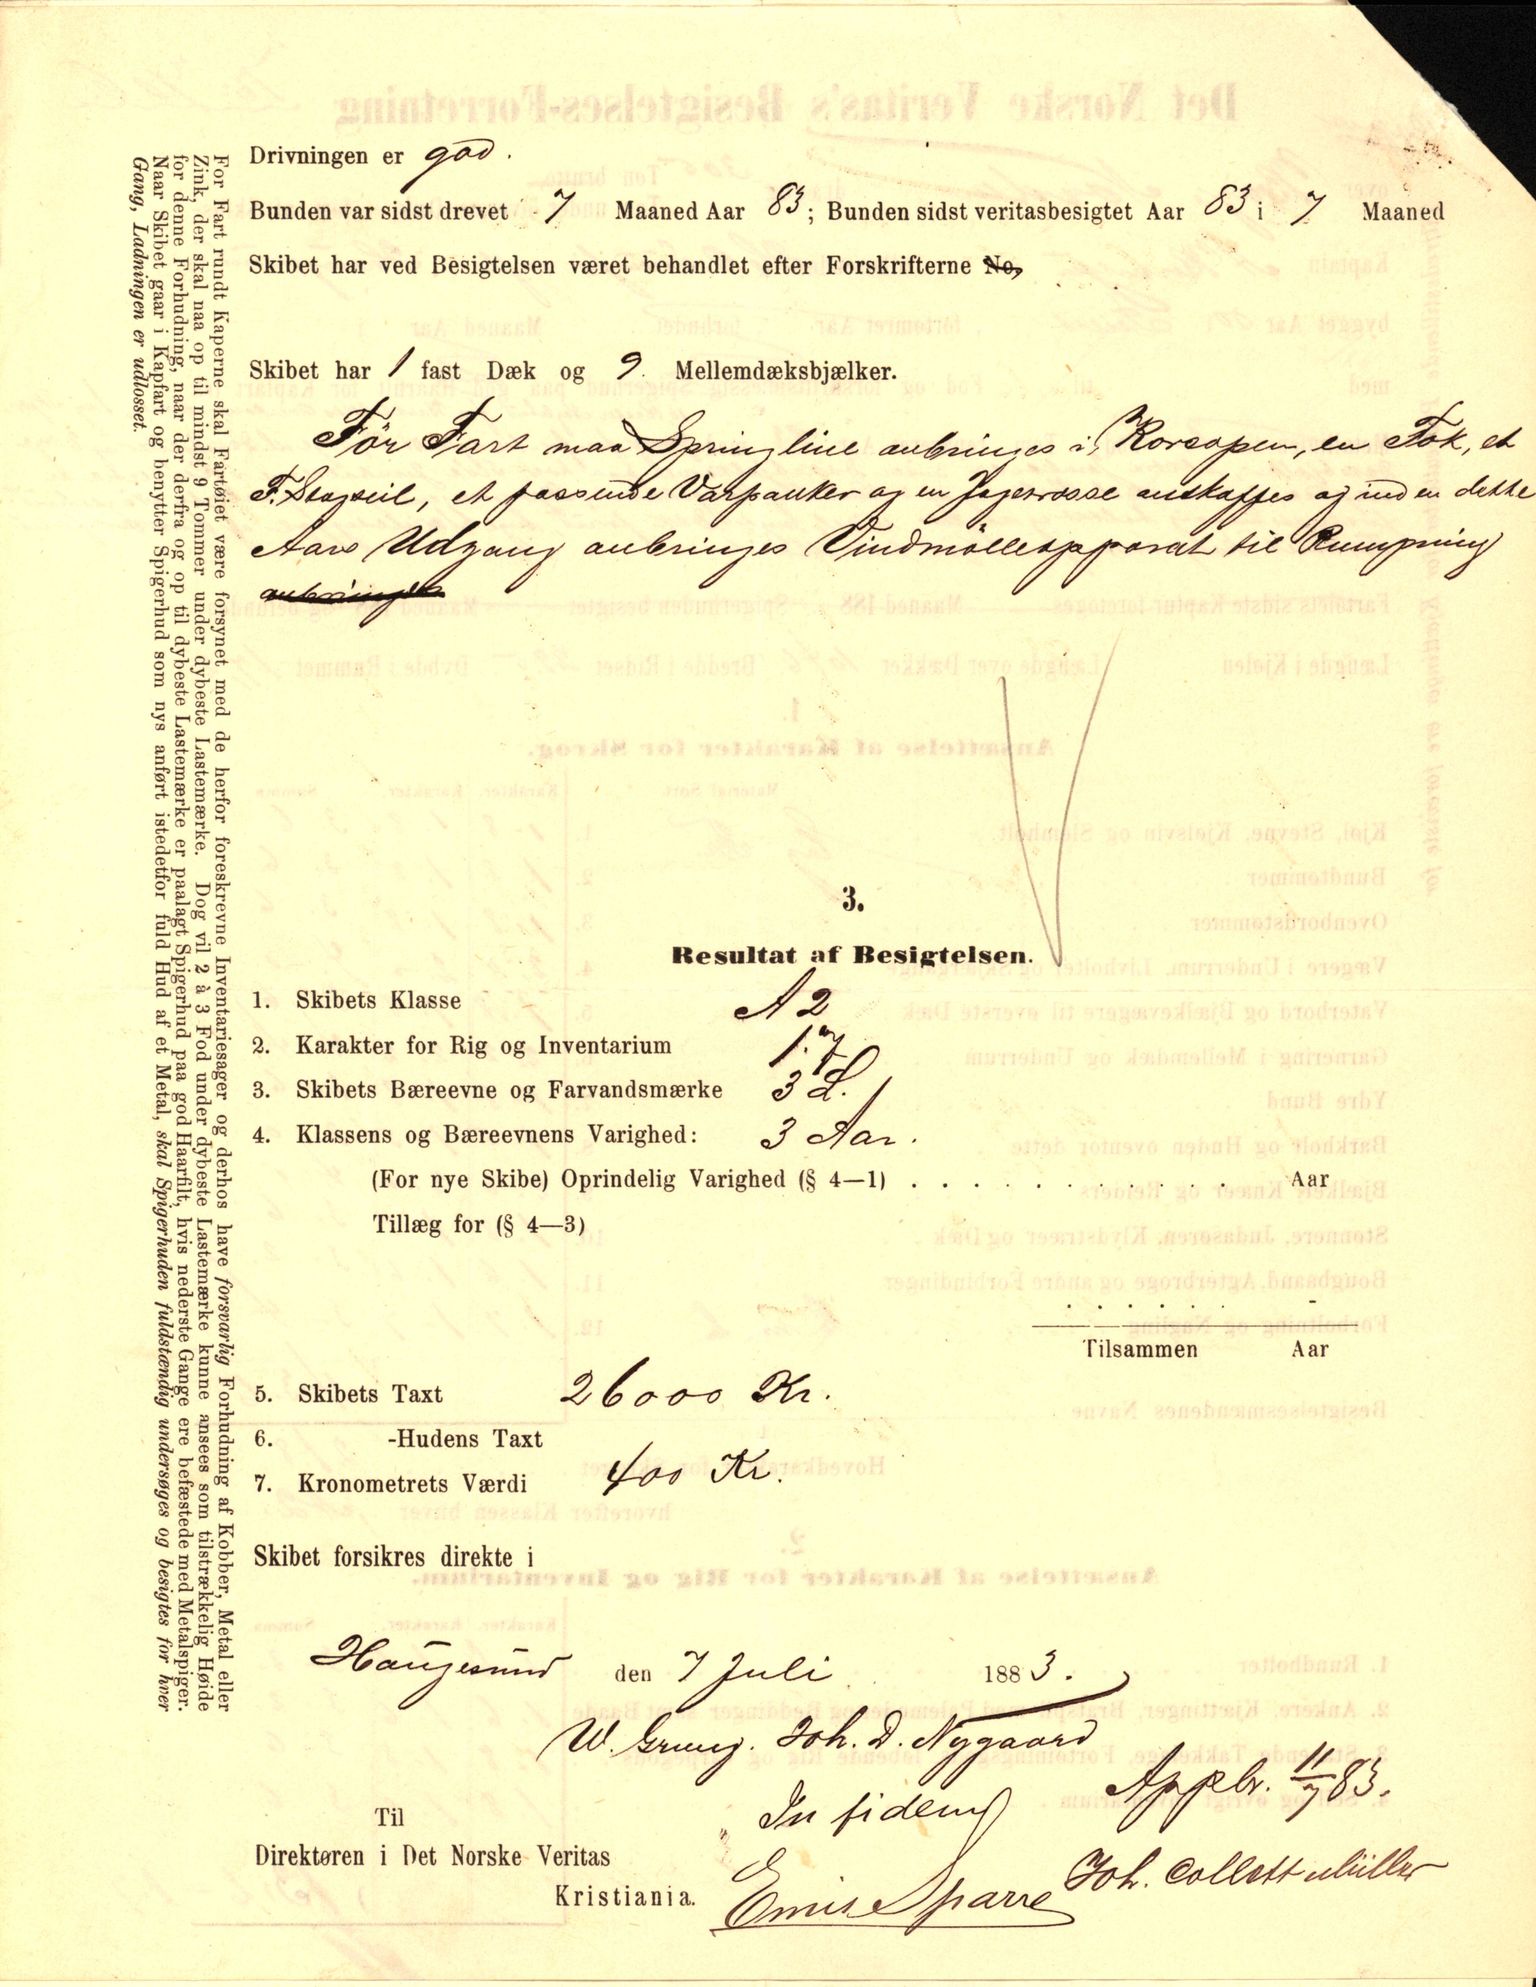 Drivningen er god.
Bunden var sidst drevet 7 Maaned Aar 83; Bunden sidst veritasbesigtet Aar 83 i 7 Maaned
Skibet har ved Besigtelsen været behandlet efter Forskrifterne No,
Skibet har 1 fast Dæk og 9 Mellemdæksbjælker.
Før Fart maa Springline anbringes i Korsopen, en Fok, et
F. Stagseil, et passende Varpanker og en Jagetrosse anskaffes og inden dette
Aars Udgang anbringes Vindmölleapparat til Pumpning
anbringes
3.
Resultat af Besigtelsen.
1. Skibets Klasse A 2
2. Karakter for Rig og Inventarium 1.7
3. Skibets Bæreevne og Farvandsmærke 3 L.
4. Klassens og Bæreevnens Varighed: 3 Aar.
(For nye Skibe) Oprindelig Varighed (§ 4—1) . . . . . . . . . . . Aar
Tillæg for (§ 4—3)
Tilsammen Aar
5. Skibets Taxt 26000 Kr.
6. -Hudens Taxt
7. Kronometrets Værdi 400 Kr.
Skibet forsikres direkte i
Haugesund den 7 Juli 1883.
W. Grung. Joh. D. Nygaard
In fidem Appbr. 11/7 83.
Til
Direktøren i Det Norske Veritas
Kristiania.
Emil Sparre Joh. Collett Müller
For Fart rundt Kaperne skal Fartøiet være forsynet med de herfor foreskrevne Inventariesager og derhos have forsvarlig Forhudning af Kobber, Metal eller
Zink, der skal naa op til mindst 9 Tommer under dybeste Lastemærke. Dog vil 2 à 3 Fod under dybeste Lastemærke kunne ansees som tilstrækkelig Høide
for denne Forhudning, naar der derfra og op til dybeste Lastemærke er paalagt Spigerhud paa god Haarfilt, hvis nederste Gange ere befæstede med Metalspiger.
Naar Skibet gaar i Kapfart og benytter Spigerhud som nys anført istedetfor fuld Hud af et Metal, skal Spigerhuden fuldstændig undersøges og besigtes for hver
Gang, Ladningen er udlosset.